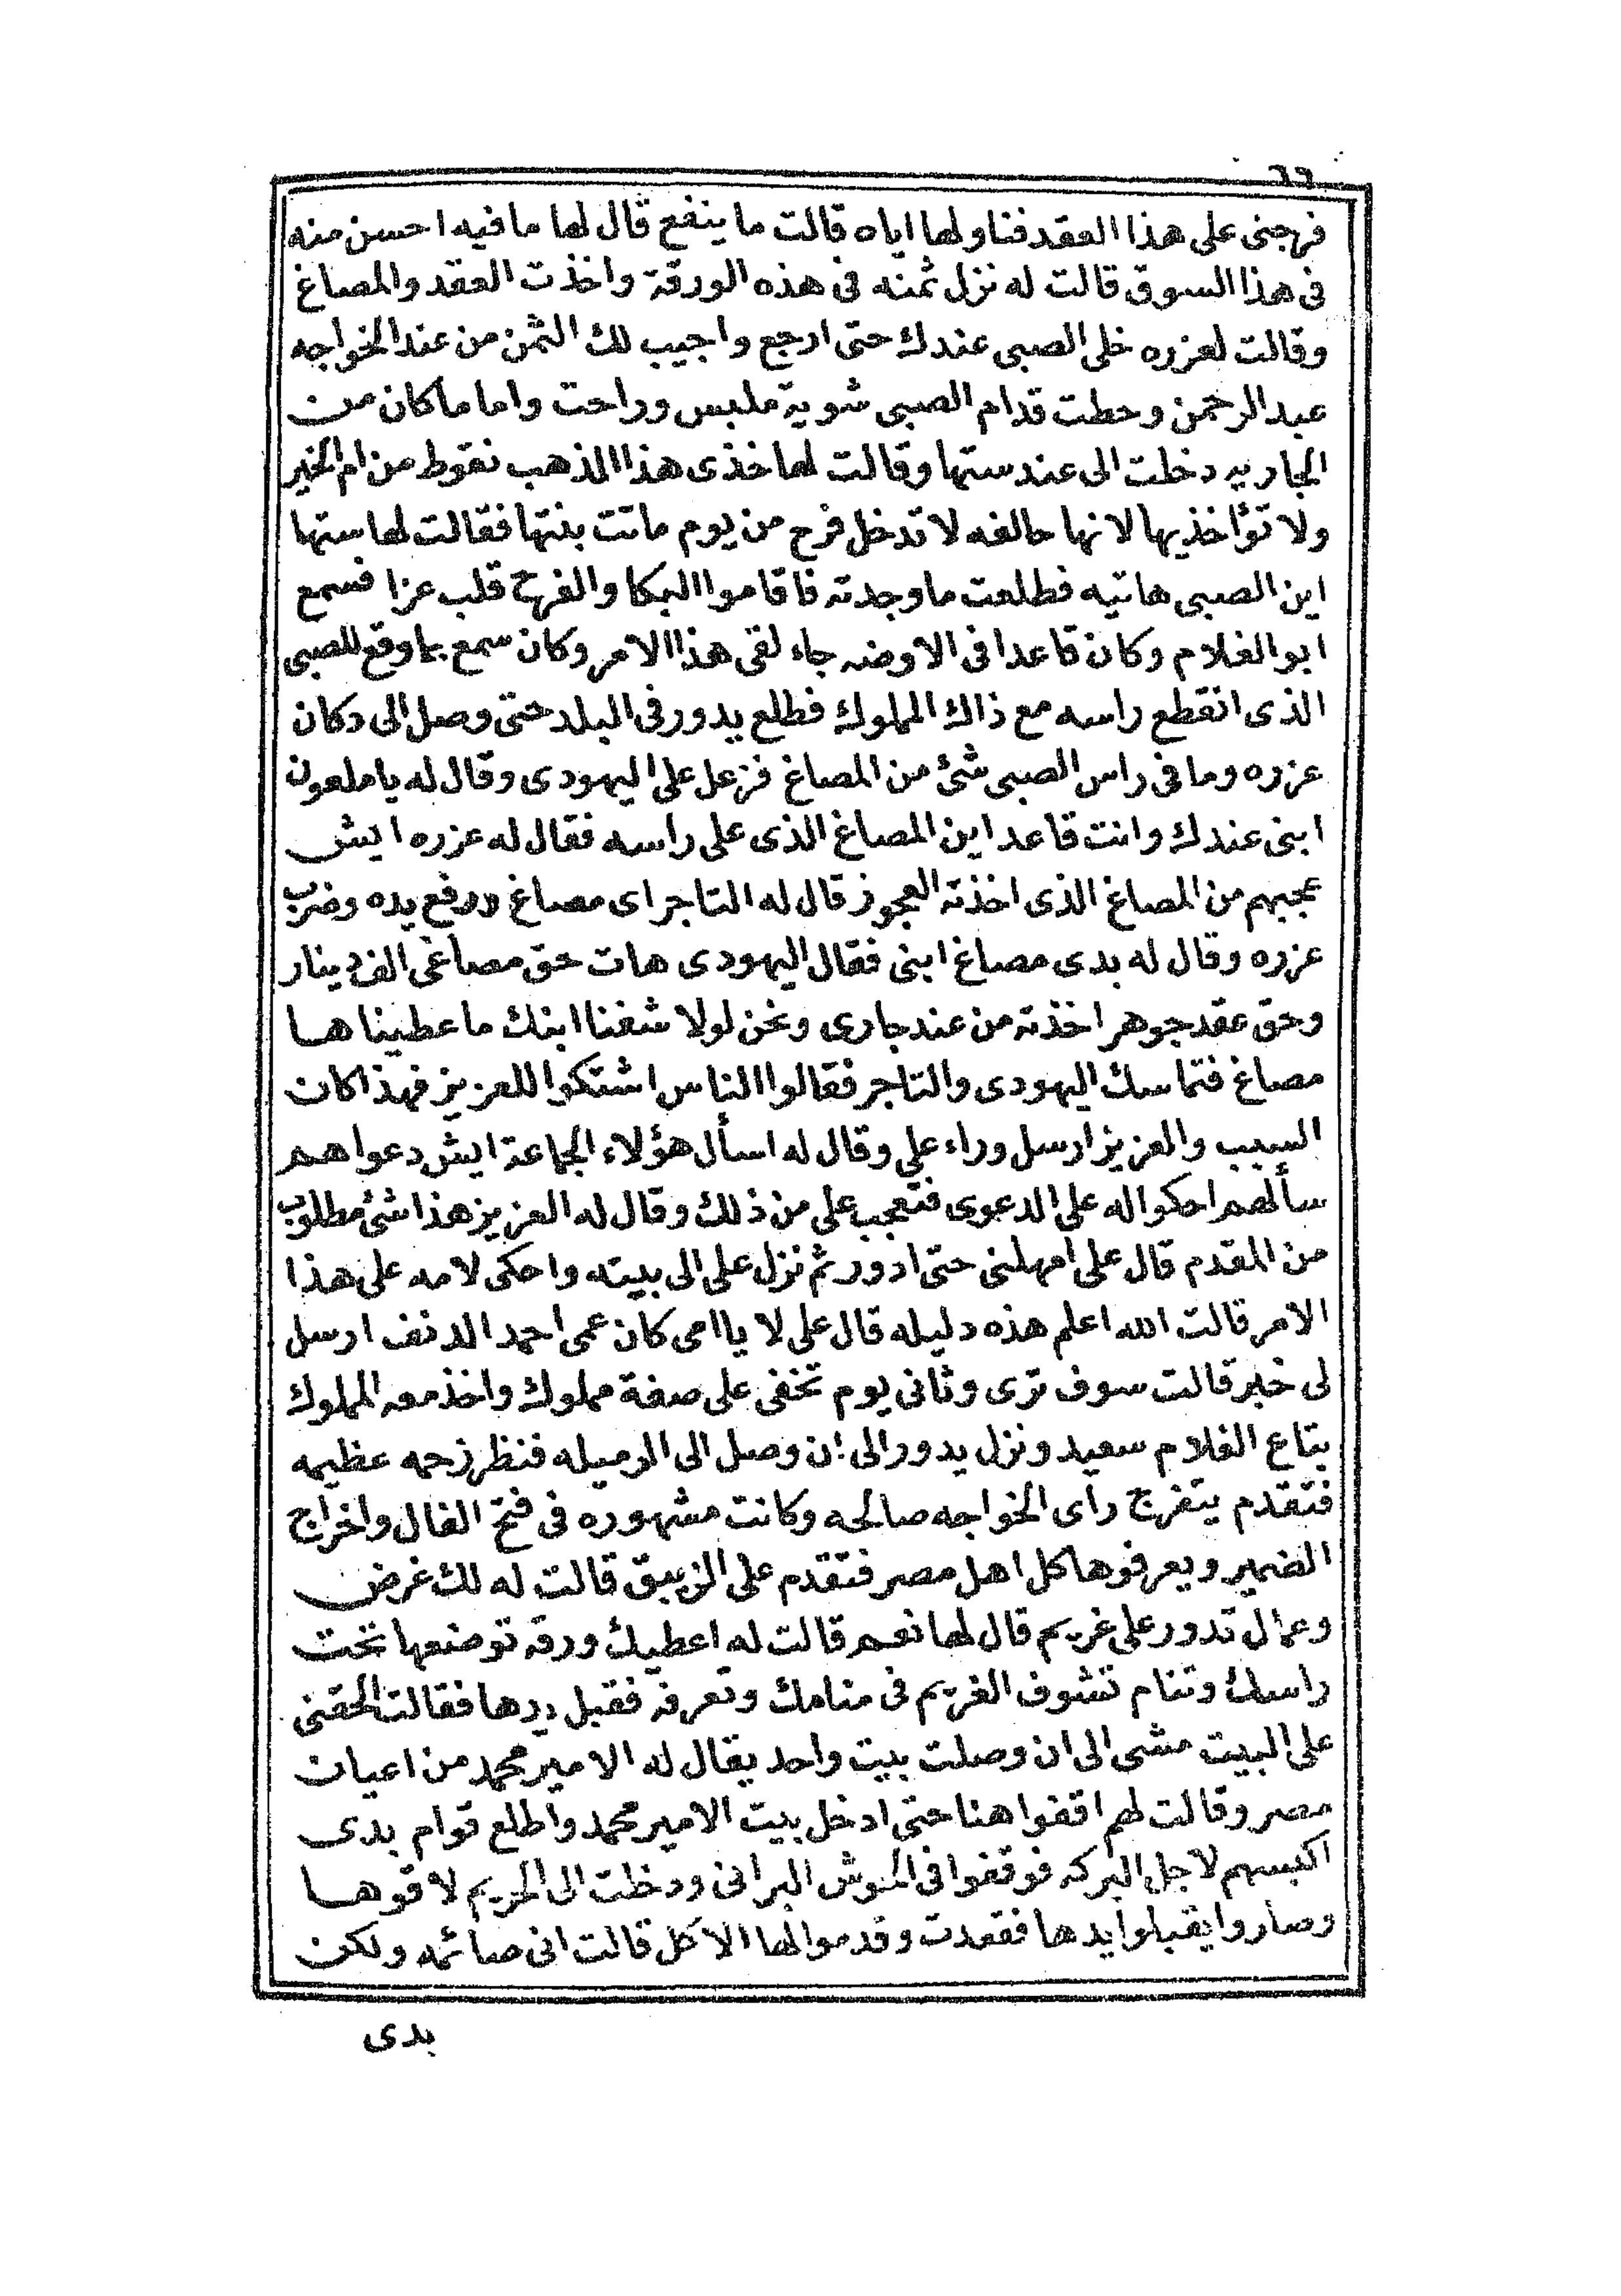 ٦٦
فرجنى على هذا العقد فناولها اياه قالت ما ينفع قال لها ما فيه احسن منه
فى هذا السوق قالت له نزل ثمنه فى هذه الورقة واخذت العقد والمصاغ
وقالت لعزره خلى الصبى عندك حتى ارجع واجيب لك الثمن من عند الخواجه
عبد الرحمن وحطت قدام الصبى شوية ملبس وراحت واما ما كان من
الجاريه دخلت الى عند ستها وقالت لها خذى هذا المذهب نقوط من ام الخير
ولا تؤاخذيها لانها حالفه لا تدخل فرح من يوم ماتت بنتها فقالت لها ستها
اين الصبى هاتيه فطلعت ما وجدته فاقاموا البكا والفرح قلب عزا فسمع
ابو الغلام وكان قاعدا فى الاوضه جاء لقى هذا الامر وكان سمع بما وقع للصبى
الذى انقطع راسه مع ذاك المملوك فطلع يدور فى البلد حتى وصل الى دكان
عزره وما فى راس الصبى شئ من المصاغ فزعل على اليهودى وقال له يا ملعون
ابنى عندك وانت قاعد اين المصاغ الذى على راسه فقال له عزره ايش
عجبهم من المصاغ الذى اخذته العجوز قال له التاجر اى مصاغ ورفع يده وضرب
عزره وقال له بدى مصاغ ابنى فقال اليهودى هات حق مصاغى الف دينار
وحق عقد جوهر اخذته من عند جارى ونحن لولا شفنا ابنك ما عطيناها
مصاغ فتماسك اليهودى والتاجر فقالوا الناس اشتكوا للعزيز فهذا كان
السبب والعزيز ارسل وراء على وقال له اسأل هؤلاء الجماعة ايش دعواهم
سألهم احكوا له على الدعوى فتعجب على من ذلك وقال له العزيز هذا شئ مطلوب
من المقدم قال على امهلنى حتى ادور ثم نزل على الى بيته واحكى لامه على هذا
الامر قالت الله اعلم هذه دليله قال على لا يا امى كان عمى احمد الدنف ارسل
لى خبر قالت سوف ترى وثانى يوم تخفى على صفة مملوك واخذ معه المملوك
بتاع الغلام سعيد ونزل يدور الى ان وصل الى الرميله فنظر زحمه عظيمه
فتقدم يتفرج راى الخواجه صالحه وكانت مشهوره فى فتح الفال واخراج
الضمير ويعرفوها كل اهل مصر فتقدم على الزيبق قالت له لك غرض
وعمال تدور على غريم قال لها نعم قالت له اعطيك ورقه توضعها تحت
راسك وتنام تشوف الغريم فى منامك وتعرفه فقبل يدها فقالت الحقنى
على البيت مشى الى ان وصلت بيت واحد يقال له الامير محمد من اعيان
مصر وقالت لهم اقفوا هنا حتى ادخل بيت الامير محمد واطلع قوام بدى
اكبسهم لاجل البركه فوقفوا فى الحوش البرانى ودخلت الى الحريم لاقوها
وصاروا يقبلوا يدها فقعدت وقدموا لها الاكل قالت انى صائمه ولكن
بدى